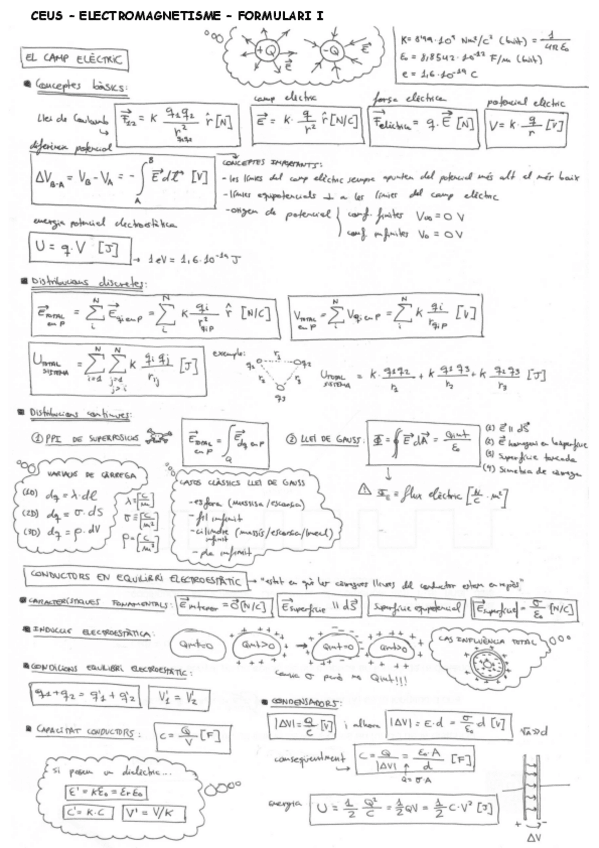 CEUS - ELECTROMAGNETISME - FORMULARI I
K = 8'99·10⁹ Nm²/C² (buit) = 1/4πε₀
ε₀ = 8,8542·10⁻¹² F/m (buit)
e = 1,6·10⁻¹⁹ C
+Q -Q E⃗ E⃗
EL CAMP ELÈCTRIC
Conceptes bàsics:
camp elèctric força elèctrica potencial elèctric
Llei de Coulomb → F⃗₁₂ = K q₁q₂/r²q₁q₂ r̂ [N] E⃗ = K·q/r² r̂ [N/C] F⃗elèctrica = q·E⃗ [N] V = K·q/r [V]
diferència potencial
ΔV_B-A = V_B - V_A = -∫_A^B E⃗dl⃗ [V]
CONCEPTES IMPORTANTS:
- les línies del camp elèctric sempre apunten del potencial més alt al més baix
- línies equipotencials ⊥ a les línies del camp elèctric
- origen de potencial { conf. finites V∞ = 0 V
conf. infinites V₀ = 0 V
energia potencial electrostàtica
U = q·V [J] → 1eV = 1,6·10⁻¹⁹ J
Distribucions discretes:
E⃗TOTAL en P = Σ_i^N E⃗qi en P = Σ_i^N K qi/r²qiP r̂ [N/C] VTOTAL en P = Σ_i^N Vqi en P = Σ_i^N K qi/rqiP [V]
UTOTAL SISTEMA = Σ_i=1^N Σ_j=1 j>i^N K qi qj/rij [J] exemple: q₁ q₂ q₃ r₁ r₂ r₃ UTOTAL SISTEMA = K·q₁q₂/r₁ + K q₁q₃/r₂ + K q₂q₃/r₃ [J]
Distribucions contínues:
① PPI DE SUPERPOSICIÓ E⃗TOTAL en P = ∫_Q E⃗dq en P ② LLEI DE GAUSS: Φ = ∮E⃗dA⃗ = Qint/ε₀
(1) E⃗ || dS⃗
(2) E⃗ homogeni en la superfície
(3) Superfície tancada
(4) Simetria de càrrega
⚠ Φ_E = flux elèctric [N/C·m²]
VARIACIÓ DE CÀRREGA
(1D) dq = λ·dl λ=[C/m]
(2D) dq = σ·dS σ=[C/m²]
(3D) dq = ρ·dV ρ=[C/m³]
CASOS CLÀSSICS LLEI DE GAUSS
- esfera (massissa/escorça)
- fil infinit
- cilindre infinit (massís/escorça/)
- pla infinit
CONDUCTORS EN EQUILIBRI ELECTROESTÀTIC → "estat en què les càrregues lliures del conductor estan en repòs"
CARACTERÍSTIQUES FONAMENTALS: E⃗interior = 0⃗ [N/C] E⃗superfície || dS⃗ superfície equipotencial |E⃗superfície| = σ/ε₀ [N/C]
INDUCCIÓ ELECTROESTÀTICA: Qint=0 Qint>0 → Qint=0 Qint>0 CAS INFLUÈNCIA TOTAL
canvia σ però no Qint!!!
CONDICIONS EQUILIBRI ELECTROESTÀTIC:
q₁+q₂ = q'₁+q'₂ V'₁ = V'₂
CONDENSADORS:
|ΔV| = Q/C [V] i alhora |ΔV| = E·d = σ/ε₀ d [V] √A>>d
CAPACITAT CONDUCTORS: C = Q/V [F]
conseqüentment → C = Q/|ΔV| = ε₀·A/d [F]
Q = σ·A
Si posem un dielèctric...
ε' = Kε₀ = εrε₀
C' = K·C V' = V/K
energia U = 1/2 Q²/C = 1/2 QV = 1/2 C·V² [J]
+ -
ΔV